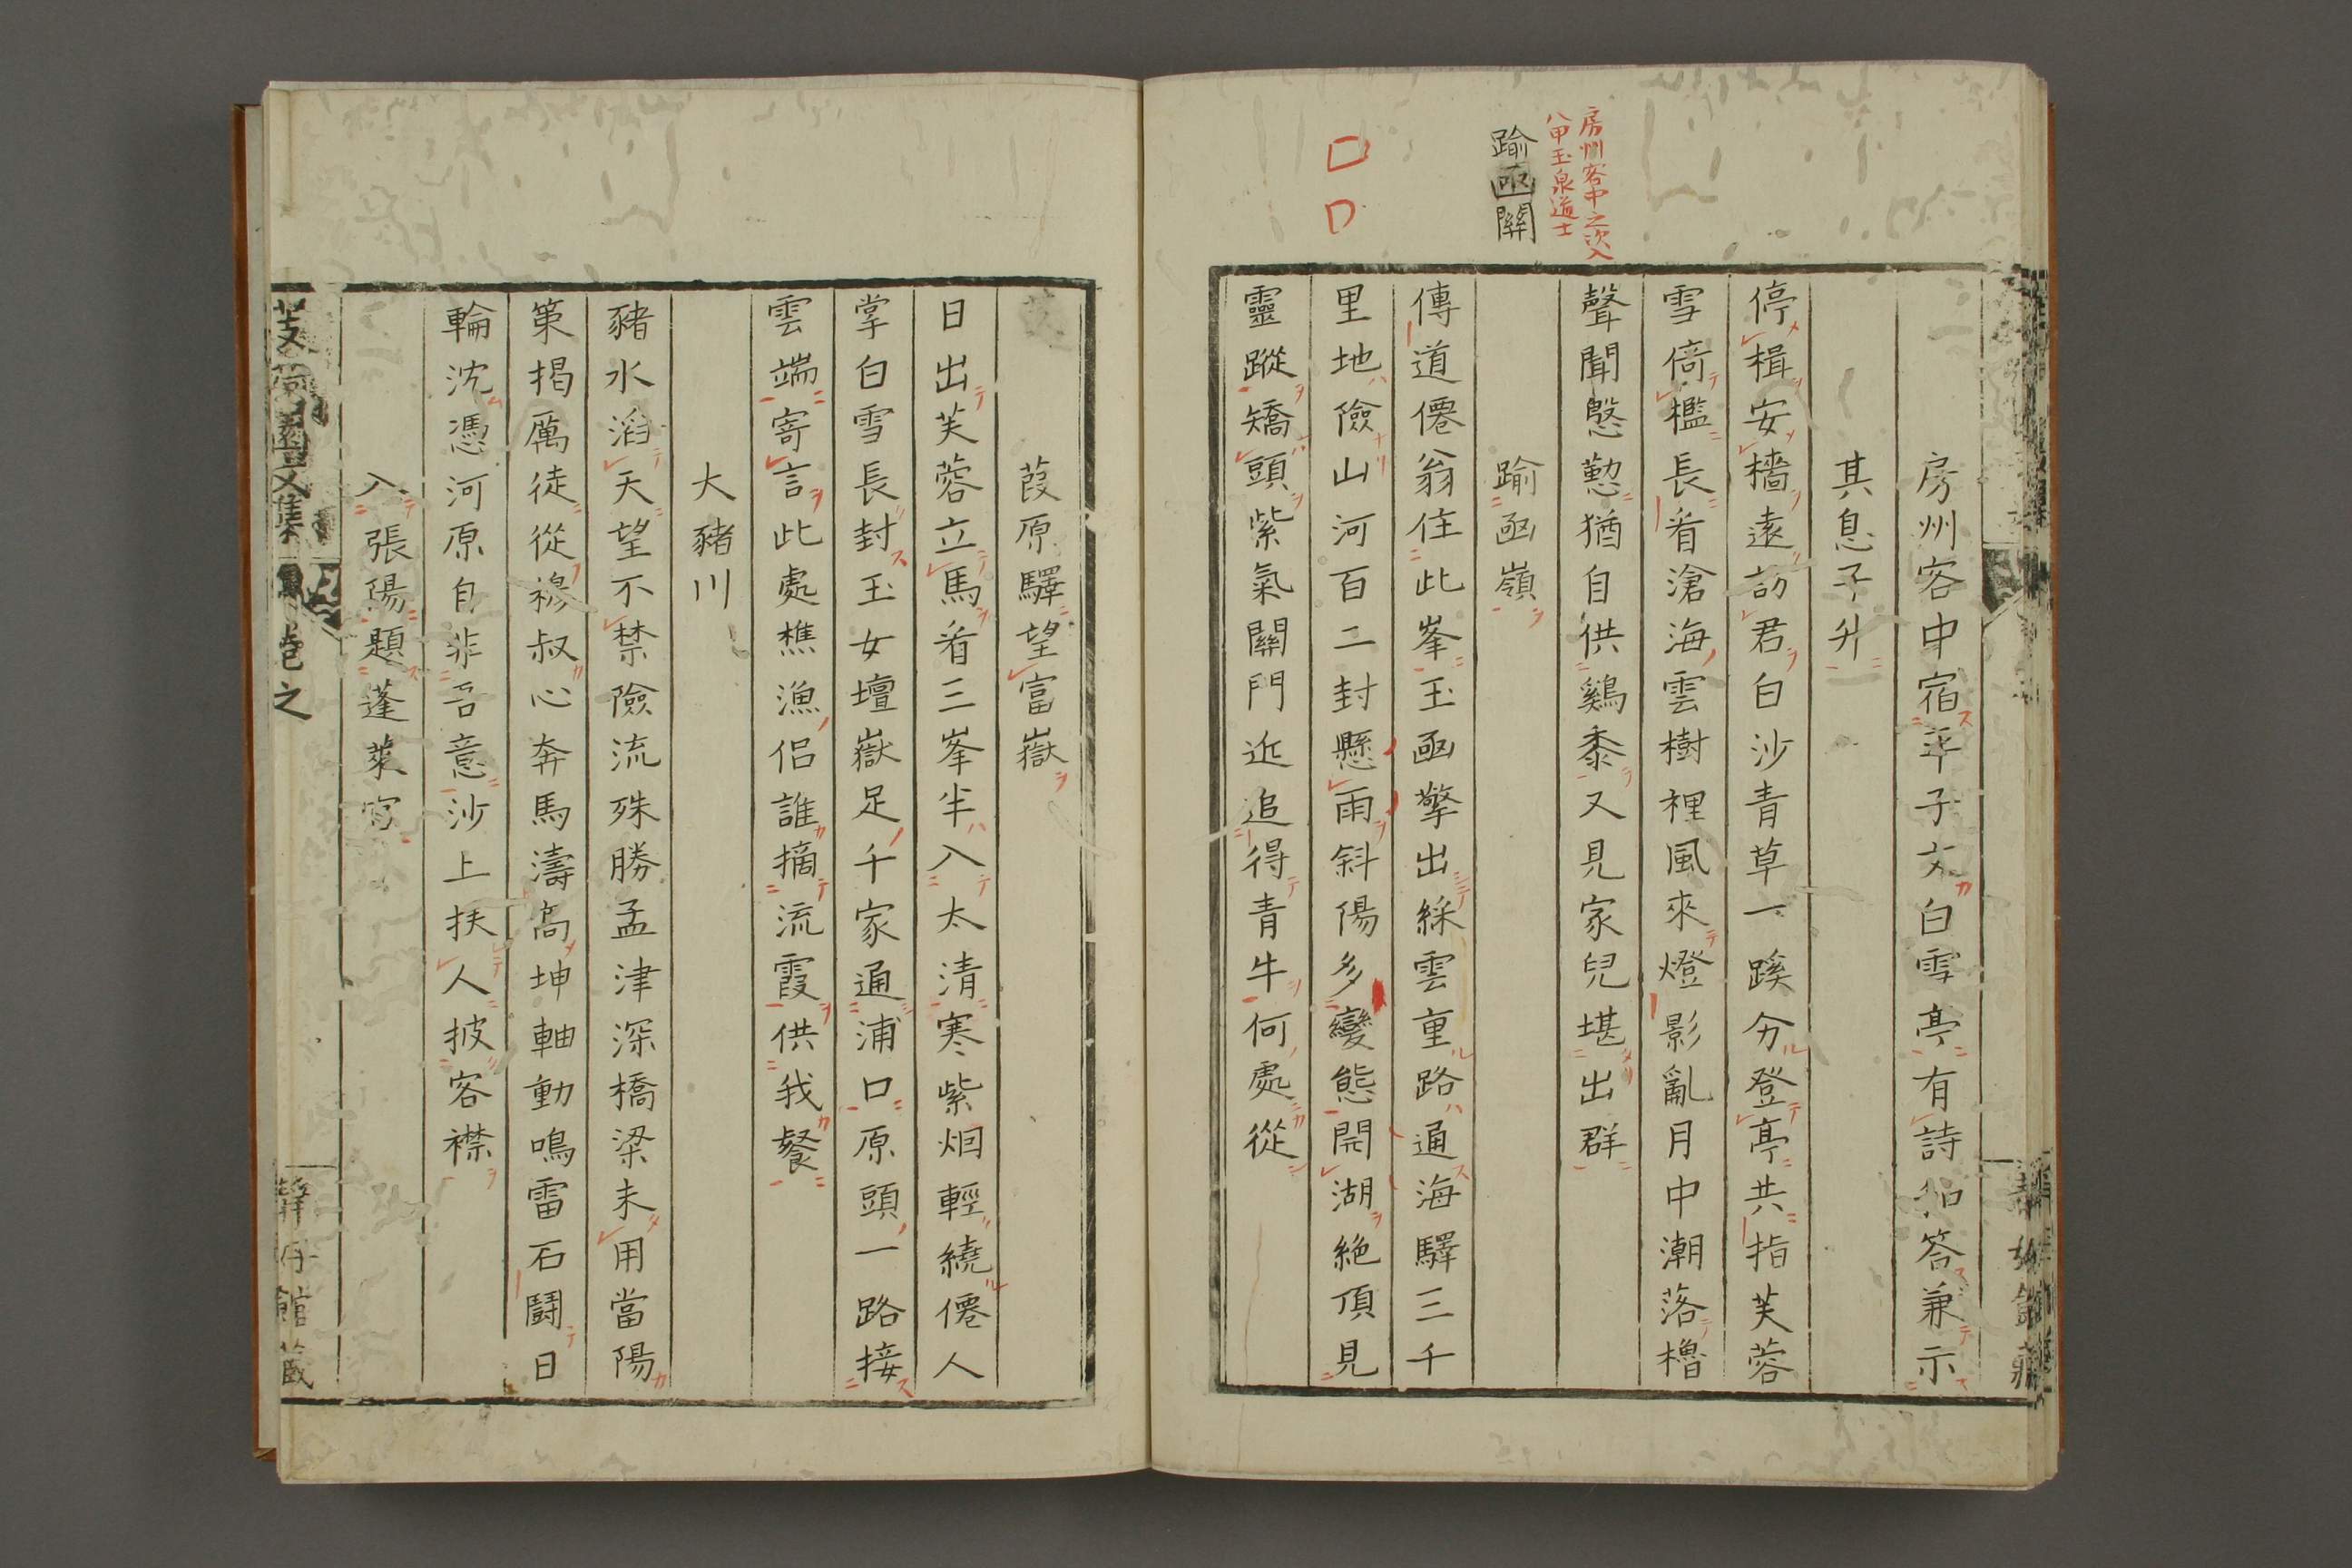 房州客中之次入
八甲玉泉道士
踰函關
房州客中宿平子文白雪亭有詩和答兼示
其息子升
停楫安檣遠訪君白沙青草一蹊分登亭共指芙蓉
雪倚檻長看滄海雲樹裡風來燈影亂月中潮落櫓
聲聞慇懃猶自供鷄黍又見家兒堪出群
踰函嶺
傳道僊翁住此峯玉函擎出綵雲重路通海驛三千
里地險山河百二封懸雨斜陽多變態開湖絶頂見
靈蹤矯頭紫氣關門近追得青牛何處從
葭原驛望富嶽
日出芙蓉立馬看三峯半入太清寒紫烟輕繞僊人
掌白雪長封玉女壇嶽足千家通浦口原頭一路接
雲端寄言此處樵漁侶誰摘流霞供我餐
大豬川
豬水滔天望不禁險流殊勝孟津深橋梁未用當陽
策揭厲徒從穆叔心奔馬濤高坤軸動鳴雷石鬪日
輪沈憑河原自非吾意沙上扶人披客襟
入張陽題蓬萊宮
芰荷園文集
卷之
館蔵